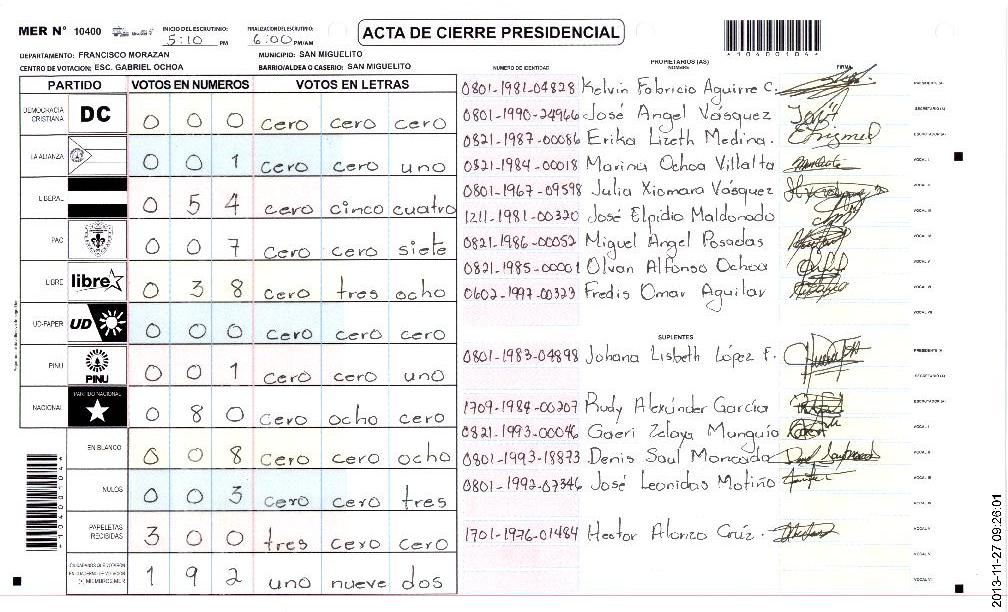 MER N° 10400 INICIO DEL ESCRUTINIO: 5:10 PM FINALIZACION DEL ESCRUTINIO: 6:00 PM/AM ACTA DE CIERRE PRESIDENCIAL
*10400104*
DEPARTAMENTO: FRANCISCO MORAZAN MUNICIPIO: SAN MIGUELITO
CENTRO DE VOTACION: ESC. GABRIEL OCHOA BARRIO/ALDEA O CASERIO: SAN MIGUELITO
PARTIDO VOTOS EN NUMEROS VOTOS EN LETRAS
DEMOCRACIA CRISTIANA DC 0 0 0 cero cero cero
LA ALIANZA 0 0 1 cero cero uno
LIBERAL 0 5 4 cero cinco cuatro
PAC 0 0 7 cero cero siete
LIBRE libre 0 3 8 cero tres ocho
UD-FAPER UD 0 0 0 cero cero cero
PINU PINU 0 0 1 cero cero uno
NACIONAL PARTIDO NACIONAL 0 8 0 cero ocho cero
EN BLANCO 0 0 8 cero cero ocho
NULOS 0 0 3 cero cero tres
PAPELETAS RECIBIDAS 3 0 0 tres cero cero
CIUDADANOS QUE VOTARON EN CUADERNO DE VOTACION (+) MIEMBROS MER 1 9 2 uno nueve dos
*10400104*
NUMERO DE IDENTIDAD PROPIETARIOS (AS) NOMBRE FIRMA
0801-1981-04828 Kelvin Fabricio Aguirre C. PRESIDENTE (A)
0801-1990-24966 José Angel Vásquez SECRETARIO (A)
0821-1987-00086 Erika Lizeth Medina. ESCRUTADOR (A)
0821-1984-00018 Marina Ochoa Villalta VOCAL I
0801-1967-09598 Julia Xiomara Vásquez VOCAL II
1211-1981-00320 José Elpidio Maldonado VOCAL III
0821-1986-00052 Miguel Angel Posadas VOCAL IV
0821-1985-00001 Olvan Alfonso Ochoa VOCAL V
0602-1997-00323 Fredis Omar Aguilar VOCAL VI
VOCAL VII
SUPLENTES
0801-1983-04898 Johana Lisbeth López F. PRESIDENTE (A)
SECRETARIO (A)
1709-1984-00207 Rudy Alexánder García ESCRUTADOR (A)
0821-1993-00046 Gaeri Zelaya Munguío VOCAL I
0801-1993-18873 Denis Saul Moncada VOCAL II
0801-1992-07346 José Leonidas Motiño VOCAL III
VOCAL IV
1701-1976-01484 Hector Alonzo Crúz. VOCAL V
VOCAL VI
VOCAL VII
2013-11-27 09:26:01